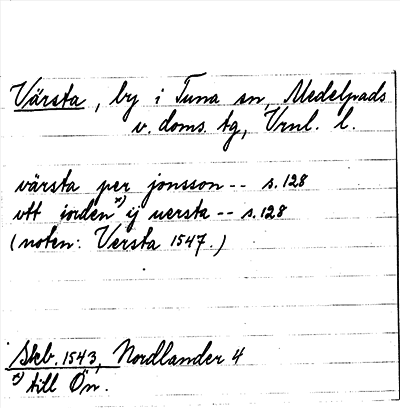 Värsta, by i Tuna sn, Medelpads
v. doms. tg, Vrnl. l.
värsta per jonsson -- s. 128
vtt iorden *) ij uersta -- s. 128
(noten: Versta 1547.)
Skb. 1543, Nordlander 4
*) till Ön.